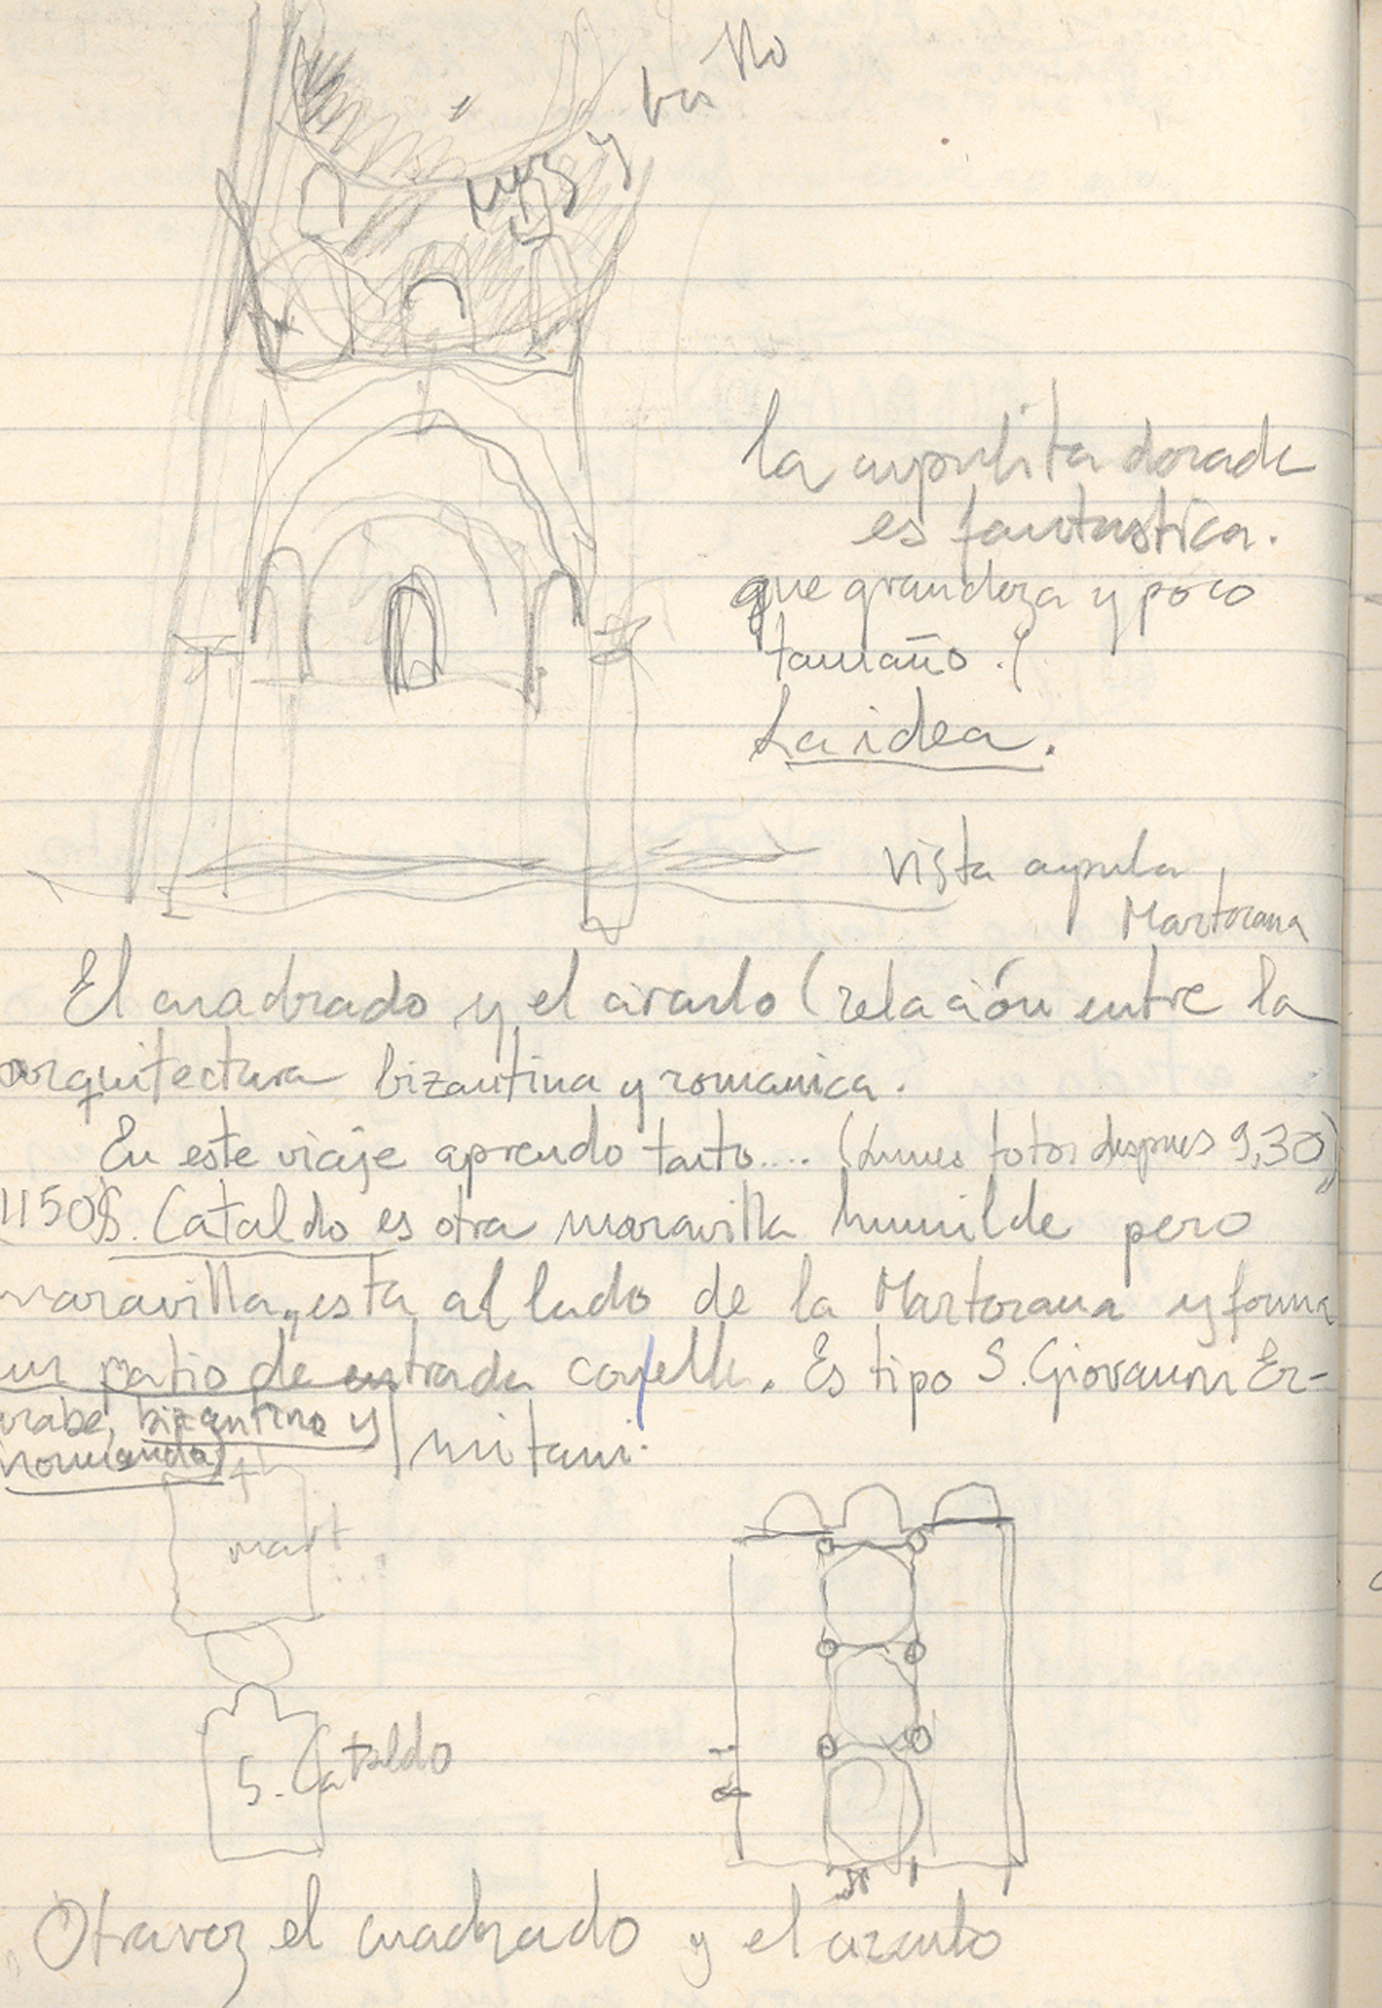 No
luz y
la cupulita dorada
es fantastica.
que grandeza y poco
tamaño.!
La idea.
vista cupula
Martorana
El cuadrado y el circulo (relación entre la
arquitectura bizantina y romanica.
En este viaje aprendo tanto.... (Lunes fotos despues 9,30)
1150 S. Cataldo es otra maravilla humilde pero
maravilla, esta al lado de la Martorana y forma
un patio de entrada con ella. Es tipo S. Giovanni Er-
arabe, bizantino y
normando)
mitani.
mart
S. Cataldo
Otra vez el cuadrado y el circulo